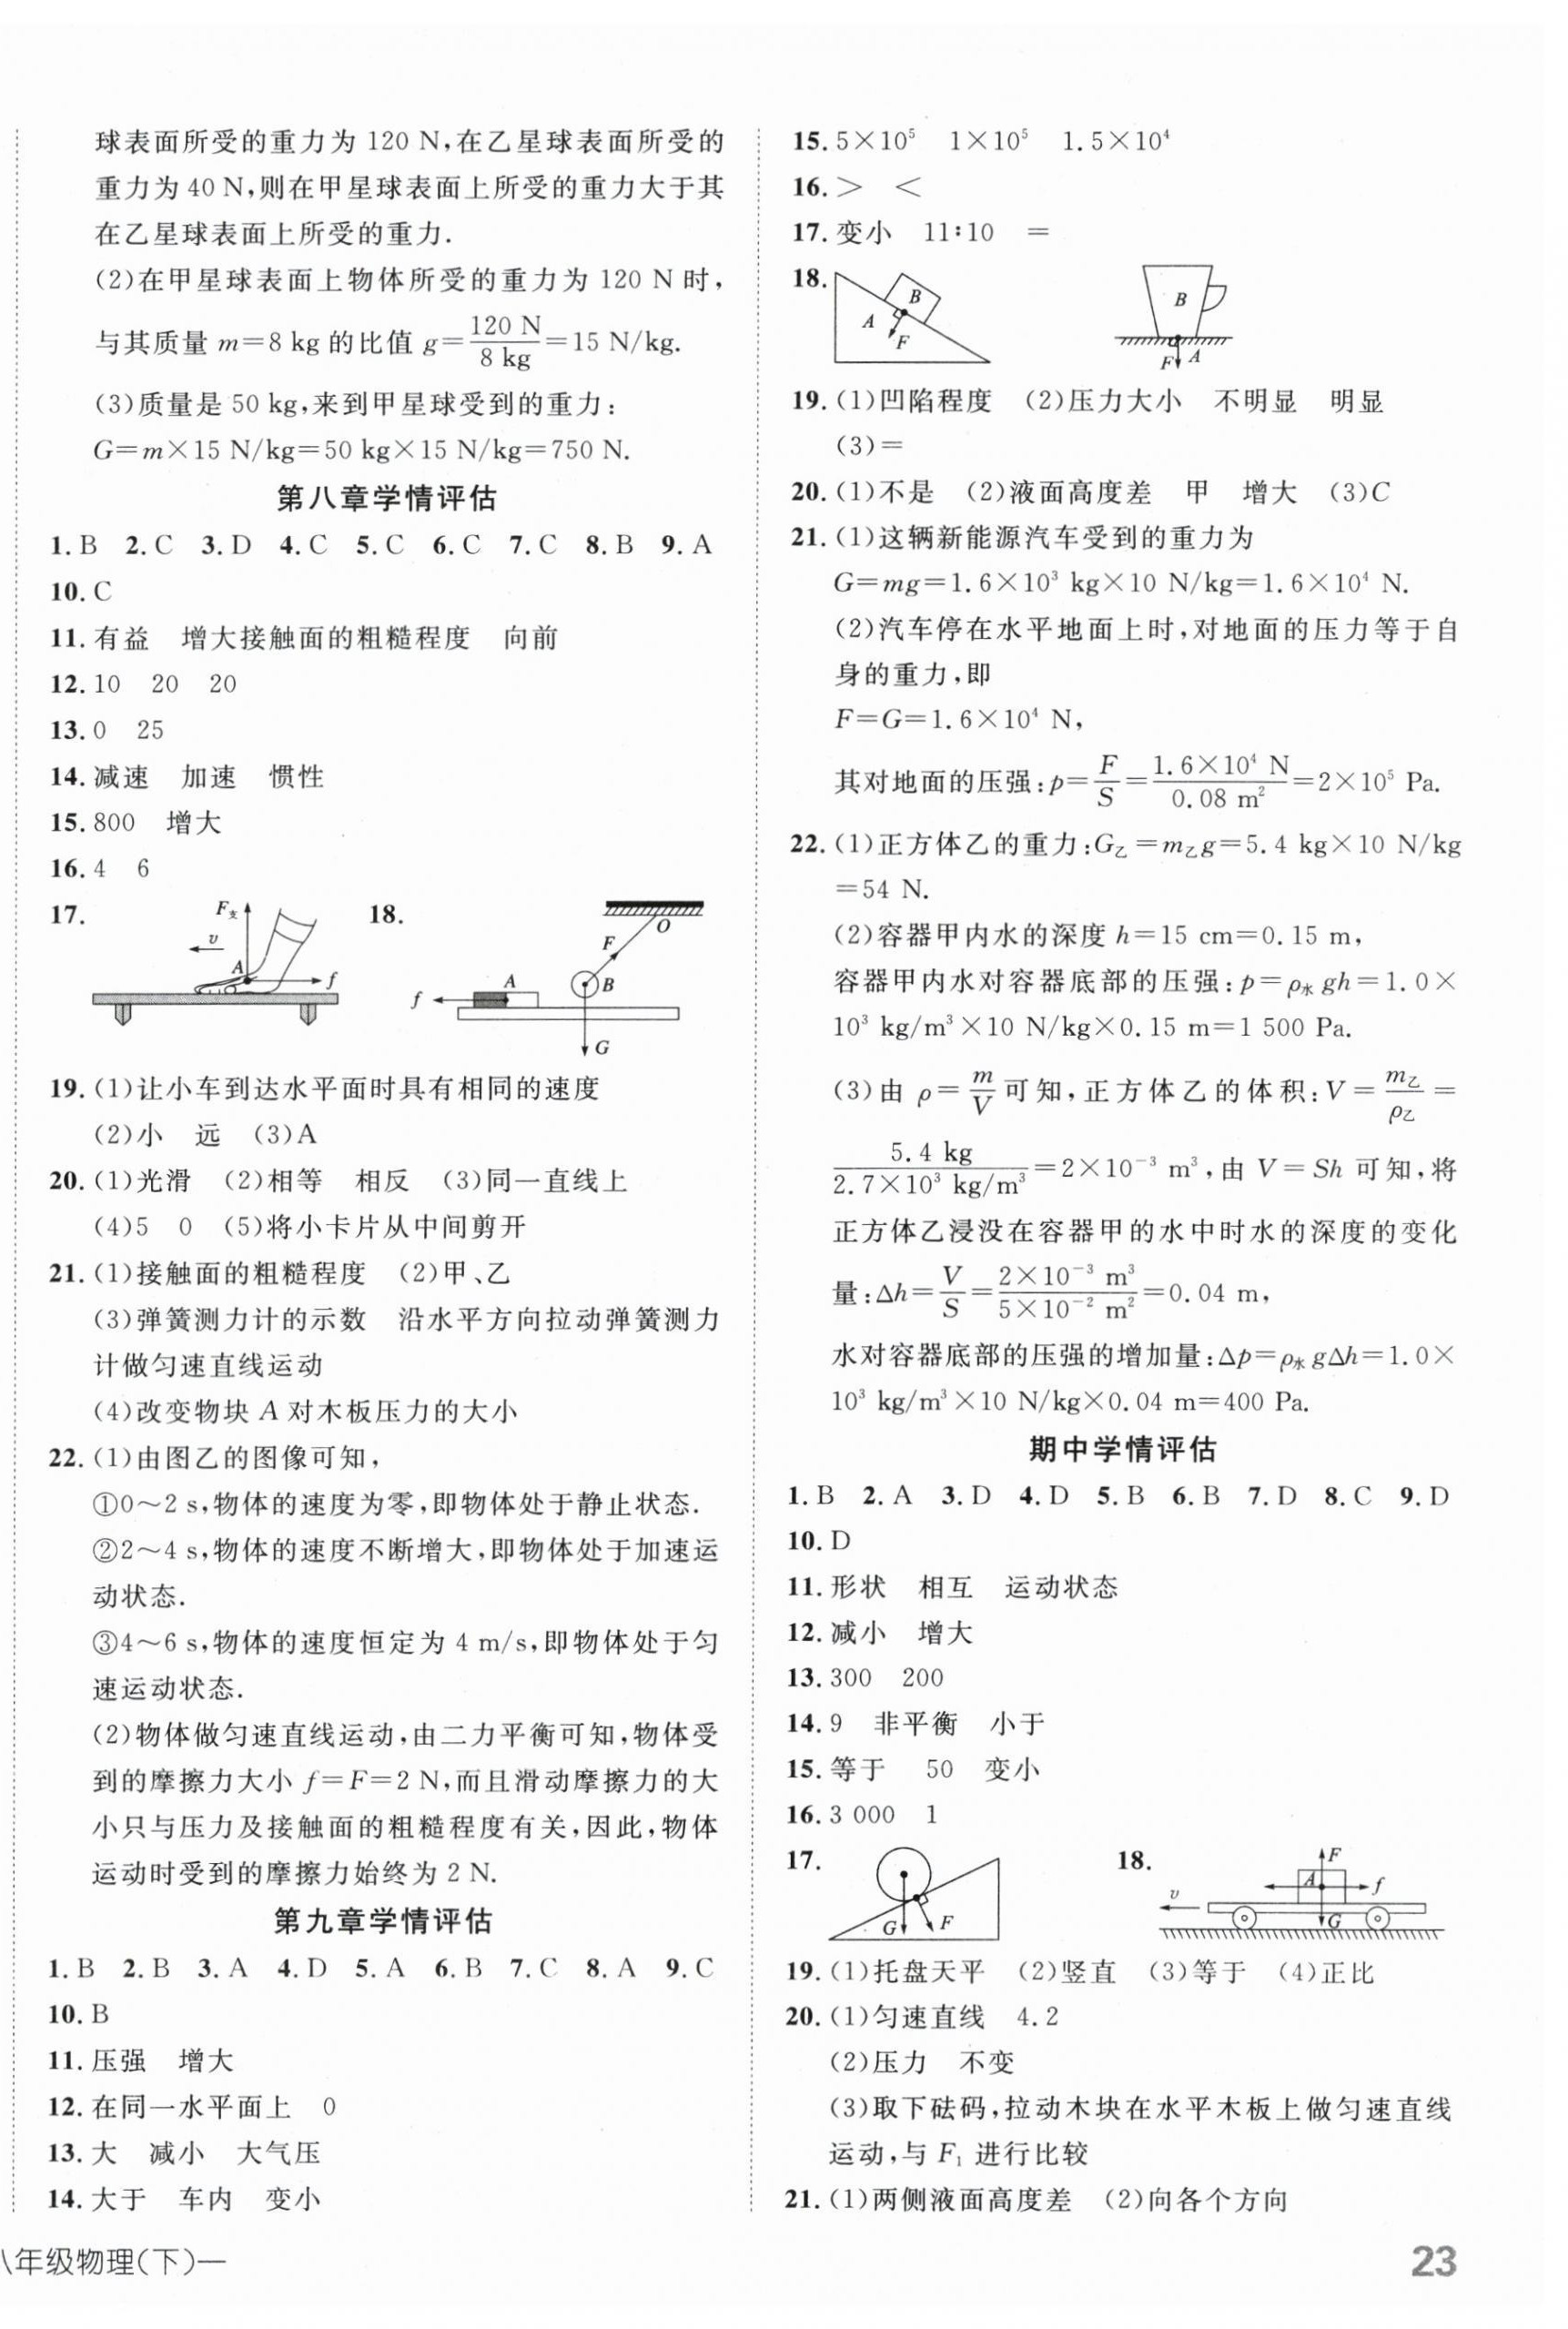 球表面所受的重力为 120 N,在乙星球表面所受的
重力为 40 N,则在甲星球表面上所受的重力大于其
在乙星球表面上所受的重力.
(2)在甲星球表面上物体所受的重力为 120 N 时,
与其质量 m=8 kg 的比值 g=120 N/8 kg=15 N/kg.
(3)质量是 50 kg,来到甲星球受到的重力:
G=m×15 N/kg=50 kg×15 N/kg=750 N.
第八章学情评估
1. B 2. C 3. D 4. C 5. C 6. C 7. C 8. B 9. A
10. C
11. 有益 增大接触面的粗糙程度 向前
12. 10 20 20
13. 0 25
14. 减速 加速 惯性
15. 800 增大
16. 4 6
17. F支 v A f 18. O F B A f G
19. (1)让小车到达水平面时具有相同的速度
(2)小 远 (3)A
20. (1)光滑 (2)相等 相反 (3)同一直线上
(4)5 0 (5)将小卡片从中间剪开
21. (1)接触面的粗糙程度 (2)甲、乙
(3)弹簧测力计的示数 沿水平方向拉动弹簧测力
计做匀速直线运动
(4)改变物块 A 对木板压力的大小
22. (1)由图乙的图像可知,
①0～2 s,物体的速度为零,即物体处于静止状态.
②2～4 s,物体的速度不断增大,即物体处于加速运
动状态.
③4～6 s,物体的速度恒定为 4 m/s,即物体处于匀
速运动状态.
(2)物体做匀速直线运动,由二力平衡可知,物体受
到的摩擦力大小 f=F=2 N,而且滑动摩擦力的大
小只与压力及接触面的粗糙程度有关,因此,物体
运动时受到的摩擦力始终为 2 N.
第九章学情评估
1. B 2. B 3. A 4. D 5. A 6. B 7. C 8. A 9. C
10. B
11. 压强 增大
12. 在同一水平面上 0
13. 大 减小 大气压
14. 大于 车内 变小
15. 5×10⁵ 1×10⁵ 1.5×10⁴
16. > <
17. 变小 11∶10 =
18. B A F B F A
19. (1)凹陷程度 (2)压力大小 不明显 明显
(3)=
20. (1)不是 (2)液面高度差 甲 增大 (3)C
21. (1)这辆新能源汽车受到的重力为
G=mg=1.6×10³ kg×10 N/kg=1.6×10⁴ N.
(2)汽车停在水平地面上时,对地面的压力等于自
身的重力,即
F=G=1.6×10⁴ N,
其对地面的压强:p=F/S=1.6×10⁴ N/0.08 m²=2×10⁵ Pa.
22. (1)正方体乙的重力:G乙=m乙g=5.4 kg×10 N/kg
=54 N.
(2)容器甲内水的深度 h=15 cm=0.15 m,
容器甲内水对容器底部的压强:p=ρ水gh=1.0×
10³ kg/m³×10 N/kg×0.15 m=1 500 Pa.
(3)由 ρ=m/V可知,正方体乙的体积:V=m乙/ρ乙=
5.4 kg/2.7×10³ kg/m³=2×10⁻³ m³,由 V=Sh 可知,将
正方体乙浸没在容器甲的水中时水的深度的变化
量:Δh=V/S=2×10⁻³ m³/5×10⁻² m²=0.04 m,
水对容器底部的压强的增加量:Δp=ρ水gΔh=1.0×
10³ kg/m³×10 N/kg×0.04 m=400 Pa.
期中学情评估
1. B 2. A 3. D 4. D 5. B 6. B 7. D 8. C 9. D
10. D
11. 形状 相互 运动状态
12. 减小 增大
13. 300 200
14. 9 非平衡 小于
15. 等于 50 变小
16. 3 000 1
17. G F 18. F A f v G
19. (1)托盘天平 (2)竖直 (3)等于 (4)正比
20. (1)匀速直线 4.2
(2)压力 不变
(3)取下砝码,拉动木块在水平木板上做匀速直线
运动,与 F₁ 进行比较
21. (1)两侧液面高度差 (2)向各个方向
八年级物理(下)—
23